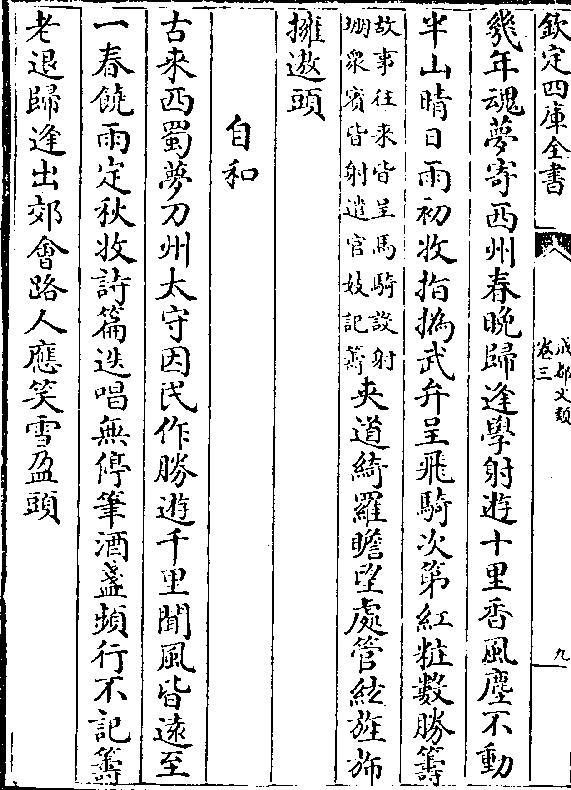 欽定四庫全書
成都文類
卷三
九
幾年魂夢寄西州春晚歸逢學射遊十里香風塵不動
半山晴日雨初收指撝武弁呈飛騎次第紅粧數勝籌
故事往來皆呈馬騎設射
堋衆賓皆射遣官妓記籌
夾道綺羅瞻望處管絃旌斾
擁遨頭
自和
古來西蜀夢刀州太守因民作勝遊千里聞風皆遠至
一春饒雨定秋收詩篇迭唱無停筆酒盞頻行不記籌
老退歸逢出郊會路人應笑雪盈頭